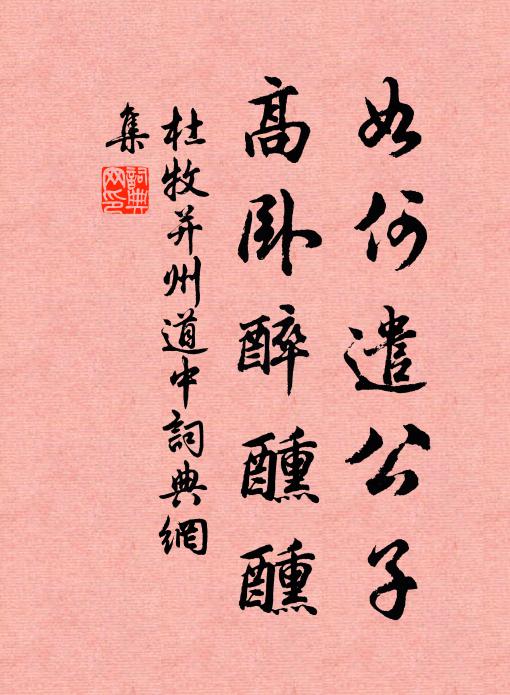 如何遣公子
高卧醉醺醺
杜牧并州道中詞典網
集
詞典
网印